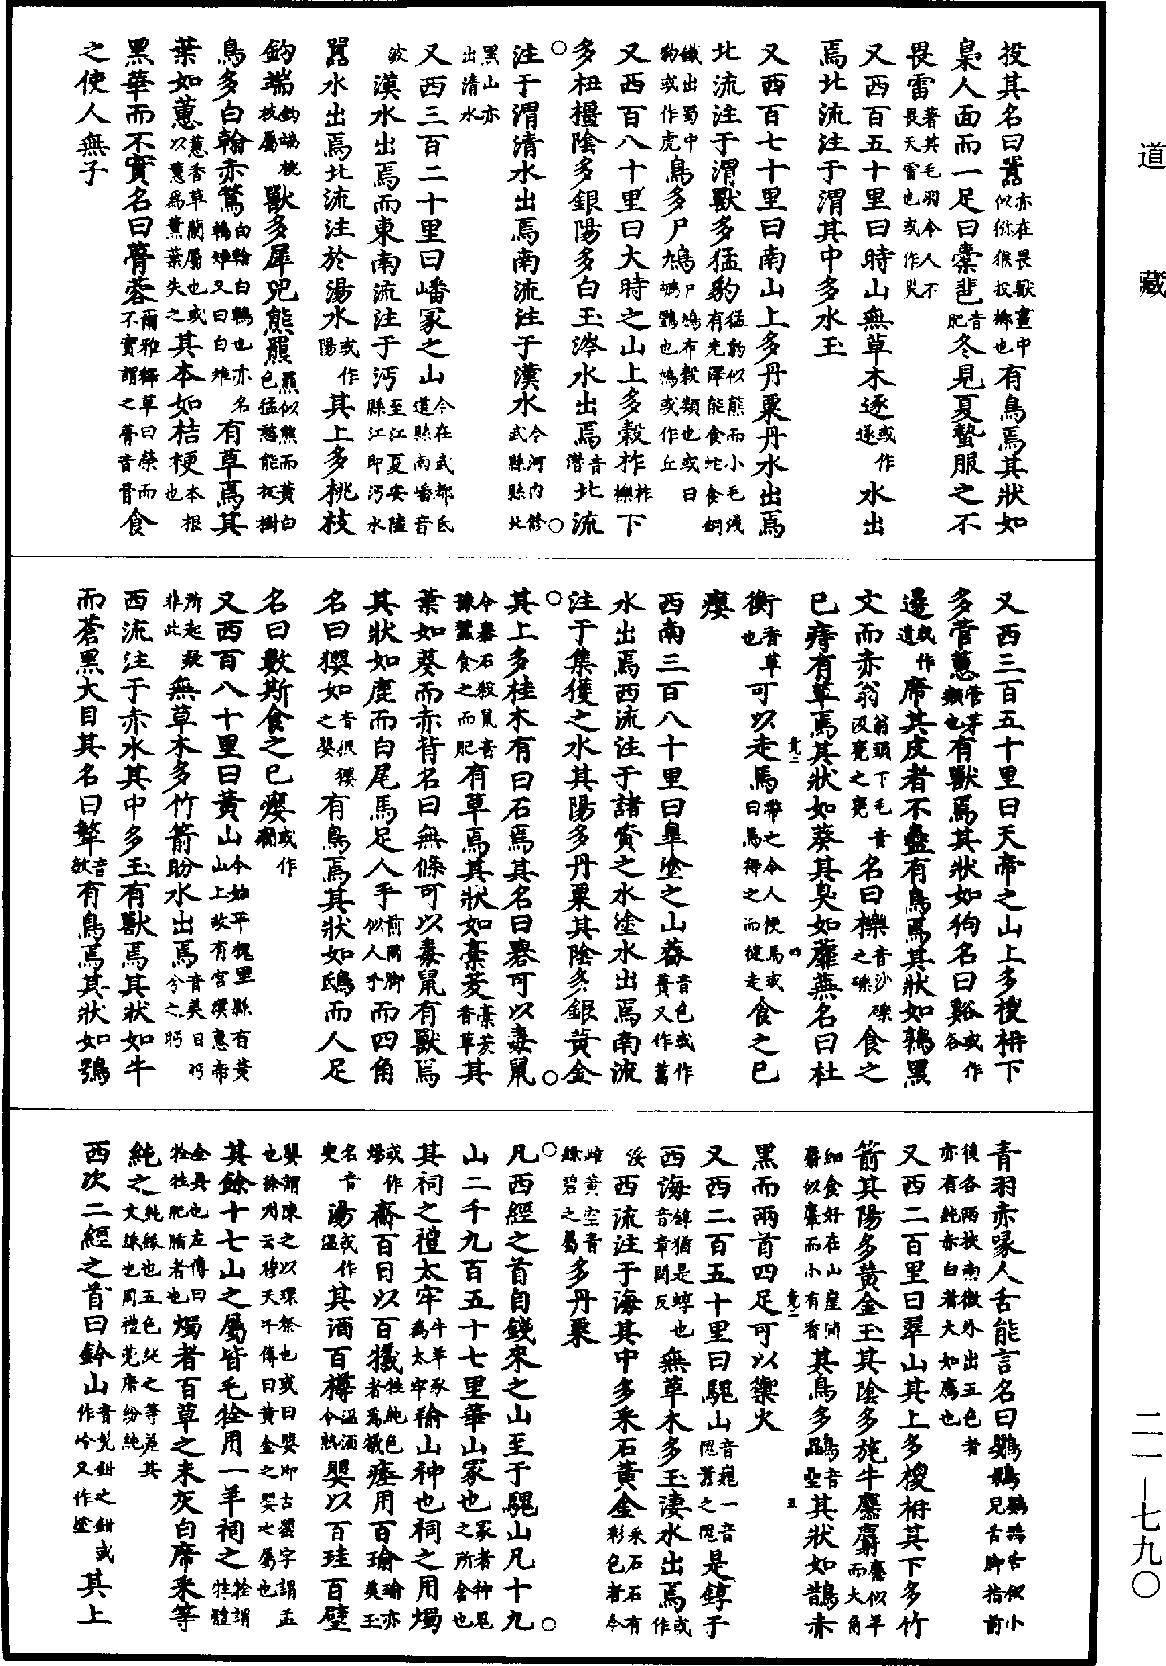 道藏
投其名曰嚻亦在畏獸畫中似獼猴投擲也有鳥焉其狀如
梟人面而一足曰橐𩇯音肥冬見夏蟄服之不
畏雷著其毛羽令人不畏天雷也或作災
又西百五十里曰時山無草木逐或作遂水出
焉北流注于渭其中多水玉
又西百七十里曰南山上多丹粟丹水出焉
北流注于渭獸多猛豹猛豹似熊而小毛淺有光澤能食蛇食銅
鐵出蜀中豹或作虎鳥多尸鳩尸鳩布穀類也或曰鶻鵃也鳩或作丘
又西百八十里曰大時之山上多穀柞柞櫟下
多杻橿陰多銀陽多白玉涔水出焉音潛北流
注于渭清水出焉南流注于漢水今河內修武縣縣北
黑山亦出清水
又西三百二十里曰嶓冢之山今在武都氐道縣南嶓音
波漢水出焉而東南流注于沔至江夏安陸縣江即沔水
嚻水出焉北流注於湯水或作陽其上多桃枝
鈎端鈎端桃枝屬獸多犀兕熊羆羆似熊而黃白色猛憨能拔樹
鳥多白翰赤鷩白翰白鵫也亦名鵫雉又曰白雉有草焉其
葉如蕙蕙香草蘭屬也或以蕙爲薰葉失之其本如桔梗本根也
黑華而不實名曰蓇蓉爾雅釋草曰榮而不實謂之蓇音骨食
之使人無子
又西三百五十里曰天帝之山上多椶枏下
多菅蕙菅茅類也有獸焉其狀如狗名曰谿或作谷
邊或作遺席其皮者不蠱有鳥焉其狀如鶉黑
文而赤翁翁頭下毛音汲甕之甕名曰櫟音沙礫之礫食之
已痔有草焉其狀如葵其臭如蘼蕪名曰杜
衡香草也可以走馬帶之令人便馬或曰馬得之而健走食之已
癭
西南三百八十里曰臯塗之山薔音色或作薋又作葍
水出焉西流注于諸資之水塗水出焉南流
注于集獲之水其陽多丹粟其陰多銀黃金
其上多桂木有白石焉其名曰礜可以毒鼠
今礜石殺鼠音豫蠶食之而肥有草焉其狀如藁茇藁茇香草其
葉如葵而赤背名曰無條可以毒鼠有獸焉
其狀如鹿而白尾馬足人手前兩脚似人手而四角
名曰玃如音猳玃之玃有鳥焉其狀如鴟而人足
名曰數斯食之已癭或作癇
又西百八十里曰黃山今始平槐里縣有黃山上故有宮漢惠帝
所起疑非此無草木多竹箭盼水出焉音美目盼兮之盼
西流注于赤水其中多玉有獸焉其狀如牛
而蒼黑大目其名曰䍺音敏有鳥焉其狀如鴞
青羽赤喙人舌能言名曰鸚䳇鸚䳇舌似小兒舌脚指前
後各兩扶南徼外出五色者亦有純赤白者大如鴈也
又西二百里曰翠山其上多椶枏其下多竹
箭其陽多黃金玉其陰多旄牛麢麝麢似羊而大角
細食好在山崖間麝似麞而小有香其鳥多鸓音壘其狀如鵲赤
黑而兩首四足可以禦火
又西二百五十里曰騩山音巍一音隗囂之隗是錞于
西海錞猶是蜳也音章閏反無草木多玉淒水出焉或作
浽西流注于海其中多采石黃金采石石有彩色者今
雌黃空青綠碧之屬多丹粟
凡西經之首自錢來之山至于騩山凡十九
山二千九百五十七里華山冢也冢者神鬼之所舍也
其祠之禮太牢牛羊豕爲太牢羭山神也祠之用燭
或作煬齋百日以百犧牲純色者爲犧瘞用百瑜瑜亦美玉
名音臾湯或作溫其酒百樽溫酒令熱嬰以百珪百璧
嬰謂陳之以環祭也或曰嬰即古罌字謂盂也徐州云穆天子傳曰黃金之嬰之屬也
其餘十七山之屬皆毛牷用一羊祠之牷謂牲體
全具也左傳曰牷牲肥腯者也燭者百草之未灰白席采等
純之純緣也五色純之等差其文綵也周禮莞席紛純
西次二經之首曰鈐山音髡鉗之鉗或作冷又作塗其上
二一—七九〇